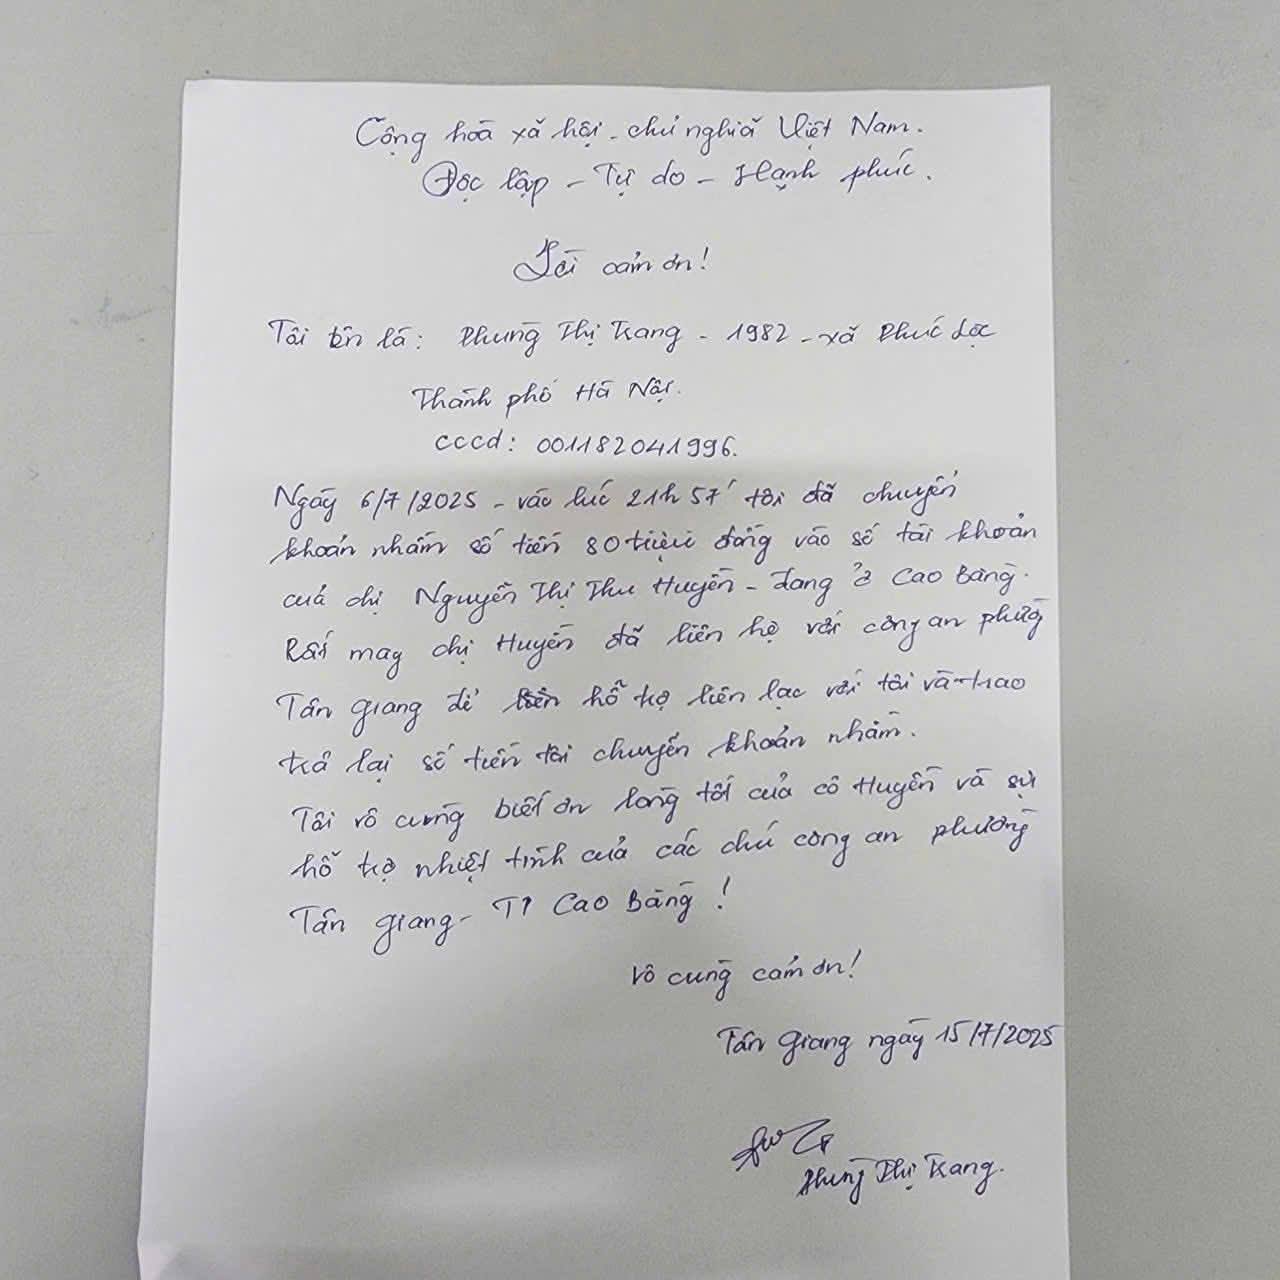 Cộng hoà xã hội - chủ nghĩa Việt Nam.
Độc lập - Tự do - Hạnh phúc.
Lời cảm ơn!
Tôi tên là: Phùng Thị Trang - 1982 - xã Phúc Lộc
Thành phố Hà Nội.
cccd: 001182041996.
Ngày 6/7/2025 - vào lúc 21h 57' tôi đã chuyển
khoản nhầm số tiền 80 triệu đồng vào số tài khoản
của chị Nguyễn Thị Thu Huyền - đang ở Cao Bằng.
Rất may chị Huyền đã liên hệ với công an phường
Tân Giang để hỗ trợ liên lạc với tôi và trao
trả lại số tiền tôi chuyển khoản nhầm.
Tôi vô cùng biết ơn lòng tốt của cô Huyền và sự
hỗ trợ nhiệt tình của các chú công an phường
Tân Giang - TP Cao Bằng!
Vô cùng cảm ơn!
Tân Giang ngày 15/7/2025
Phùng Thị Trang.